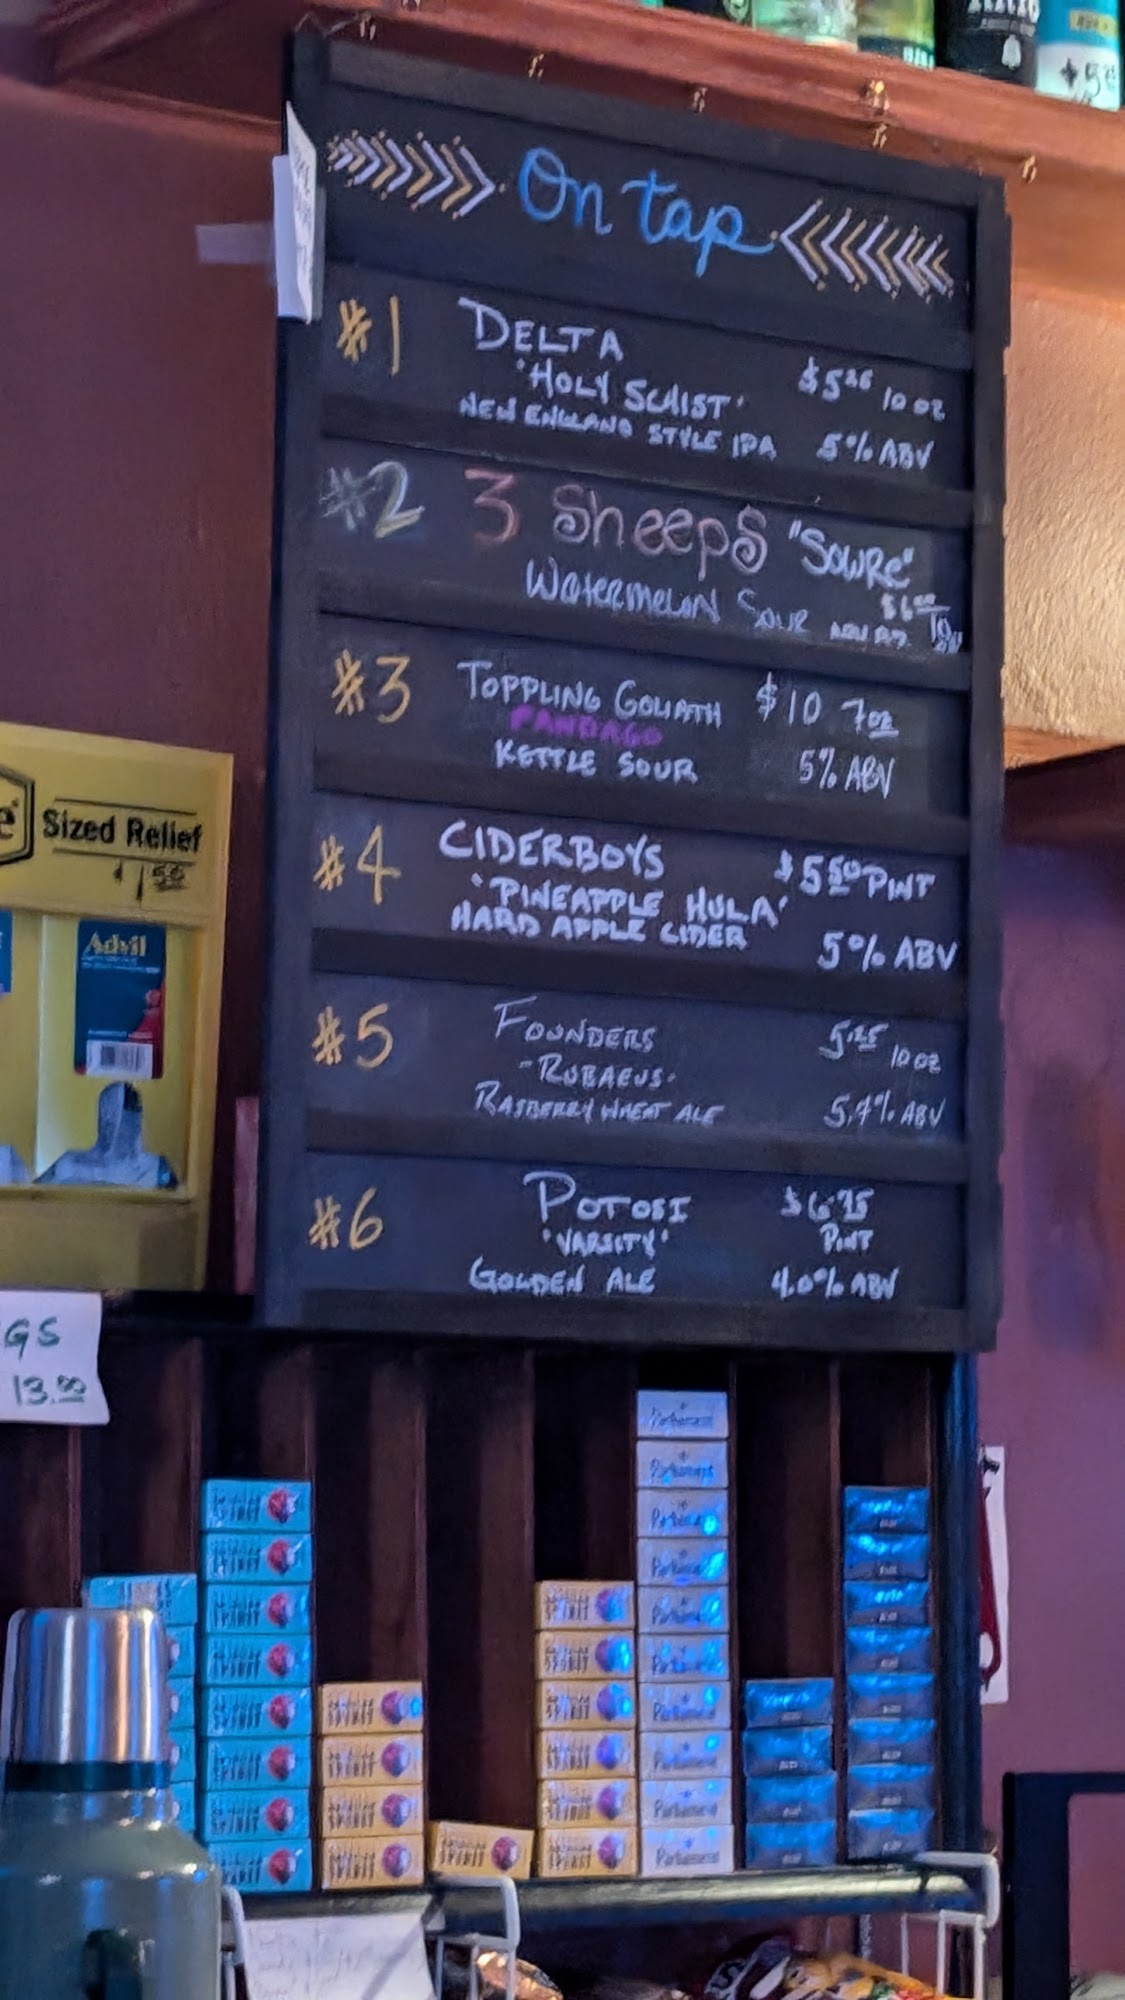 On tap
#1 DELTA
'HOLY SCHIST' $5.25 10 oz
NEW ENGLAND STYLE IPA 5% ABV
#2 3 Sheeps "Sowre"
Watermelon Sour $6.00
#3 TOPPLING GOLIATH $10 7oz
PANDAGO
KETTLE SOUR 5% ABV
#4 CIDERBOYS $5.50 PINT
'PINEAPPLE HULA'
HARD APPLE CIDER 5% ABV
#5 FOUNDERS 5.25 10 oz
-RUBAEUS-
RASBERRY WHEAT ALE 5.7% ABV
#6 POTOSI $6.75
'VARSITY' PINT
GOLDEN ALE 4.0% ABV
e Sized Relief
1.50
Advil
GS
13.00
SPIRIT
Parliament